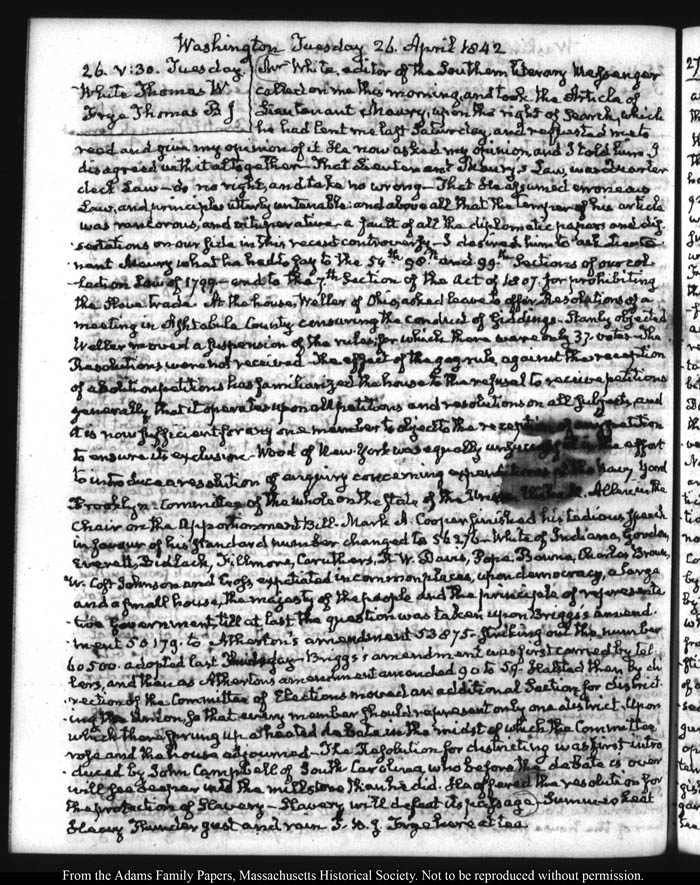 Washington Tuesday 26. April 1842
26. V:30. Tuesday.
White Thomas W.
Frye Thomas B J
Mr White, editor of the Southern literary Messenger
called on me this morning, and took the Article of
Lieutenant Maury, upon the right of Search, which
he had sent me last Saturday, and requested me to
read and give my opinion of it. He now asked my opinion, and I told him I
disagreed with it altogether. That Lieutenant Maury's Law, was Quarter
deck Law — do no right, and take no wrong — That he assumed erroneous
Law, and principles utterly untenable: and above all that the temper of his article
was rancorous, and vituperative. a fault of all the diplomatic papers and dis-
sertations on our side in this recent controversy. I desired him to ask Lieute-
nant Maury what he had to say to the 54th 98th and 99th Sections of our col-
lection Law of 1799 — and to the 7th Section of the Act of 1807. for prohibiting
the slave trade. At the house, Weller of Ohio, asked leave to offer Resolutions of a
meeting in Ashtabula County censuring the conduct of Giddings. Stanly objected
Weller moved a suspension of the rules, for which there were only 37. votes. The
Resolutions were not received. The effect of the gag rule, against the reception
of abolition petitions has familiarized the house to the refusal to receive petitions
generally, that it operates upon all petitions and resolutions on all subjects, and
it is now sufficient for any one member to object to the reception of any petition
to ensure its exclusion. Wood of New York was equally in the effort
to introduce a resolution of enquiry concerning expenditures at the Navy Yard
Brooklyn. Committee of the whole on the state of the Union. Allen in the
Chair on the Apportionment Bill. Mark A. Cooper finished his tedious speech
in favour of his standard number changed to 56276 — White of Indiana, Gordon,
Everett, Bidlack, Fillmore, Caruthers, R. W. Davis, Pope, Bowne, Charles Brown,
W. Cost Johnson and Cross, expatiated in commonplaces, upon democracy, a large
and a small house, the majesty of the people and the principle of representa-
tive Government, till at last the question was taken upon Briggs's amend-
ment 50179. to Atherton's amendment 53875. striking out the number
60500. adopted last Thursday. Briggs's amendment was first carried by tel-
lers, and then as Atherton's amendment amended 90 to 59. Halsted then by di-
rection of the Committee of Elections moved an additional Section for district-
ing the Union, so that every member should represent only one district. Upon
which there sprung up a heated debate in the midst of which the Committee
rose and the house adjourned. The Resolution for districting was first intro-
duced by John Campbell of South Carolina, who before the debate is over
will see deeper into the millstone than he did. He offered the resolution for
the protection of Slavery — Slavery will defeat its passage — Summer heat
Heavy Thunder gust and rain T. B. J. Frye here at tea.
From the Adams Family Papers, Massachusetts Historical Society. Not to be reproduced without permission.